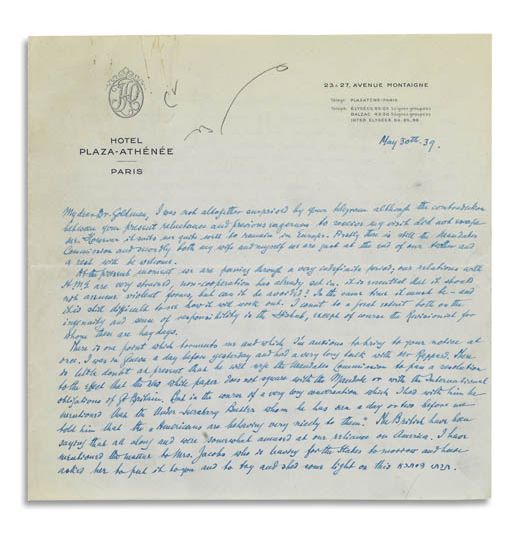 HOTEL
PLAZA-ATHÉNÉE
PARIS
23 à 27, AVENUE MONTAIGNE
Télégr. PLAZATENE-PARIS
Téléph.
BALZAC
INTER ÉLYSÉES
May 30th. 39.
My dear Dr. Goldman, I was not altogether surprised by your telegram although the contradiction
between your present reluctance and previous eagerness to receive my visit did not escape
me. However it suits me quite well to remain in Europe. Firstly there is still the Mandates
Commission and secondly both my wife and myself we are just at the end of our tether and
a rest will be welcome.
At the present moment we are passing through a very indefinite period, our relations with
H.M.G. are very strained, non-cooperation has already set in. it is essential that it should
not assume violent forms, but can it be avoided? In the same time it must be - and
it is still difficult to see how it will work out. I count to a great extent both on the
ingenuity and sense of responsibility of the Yishub, except of course the Revisionist for
whom these are
There is one point which torments me and which I'm anxious to bring to your notice at
once. I was in Geneva a day before yesterday and had a very long talk with Mr. Rappard. There
is little doubt at present that he will urge the Mandates Commission to pass a resolution
to the effect that the white paper does not square with the Mandate or with the International
obligations of Gt Britain. But in the course of a very long conversation which I had with him he
mentioned that the Under Secretary Butler whom he has seen a day or two before me
told him that the "Americans are behaving very nicely to them." The British have been
saying that all along and were somewhat amused at our reliance on America. I have
mentioned the matter to Mrs. Jacobs who is leaving for the States to-morrow and have
asked her to put it to you and to try and shed some light on this